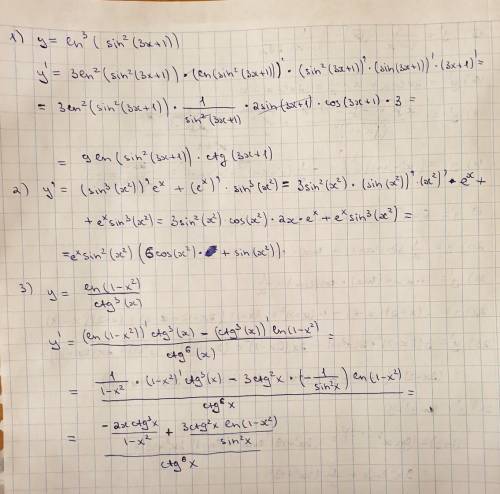 1) y = ln³ (sin² (3x+1))
y' = 3ln² (sin² (3x+1)) • (ln(sin² (3x+1)))' • (sin² (3x+1))' • (sin(3x+1))' • (3x+1)' =
= 3ln² (sin² (3x+1)) • 1/sin² (3x+1) • 2sin(3x+1) • cos(3x+1) • 3 =
= 9ln (sin² (3x+1)) • ctg (3x+1)
2) y' = (sin³ (x²))' eˣ + (eˣ)' • sin³ (x²) = 3sin² (x²) • (sin (x²))' • (x²)' • eˣ +
+ eˣ sin³ (x²) = 3sin² (x²) • cos(x²) • 2x • eˣ + eˣ sin³ (x²) =
= eˣ sin² (x²) (6cos(x²) • + sin (x²)).
3) y = ln (1-x²)/ctg³ (x)
y' = ((ln (1-x²))' ctg³ (x) − (ctg³ (x))' ln (1-x²))/ctg⁶ (x) =
= (1/(1-x²) • (1-x²)' ctg³ (x) − 3ctg² x • (−1/sin² x) ln (1-x²))/ctg⁶ x =
= (−2x ctg³ x/(1-x²) + 3ctg² x ln (1-x²)/sin² x)/ctg⁶ x